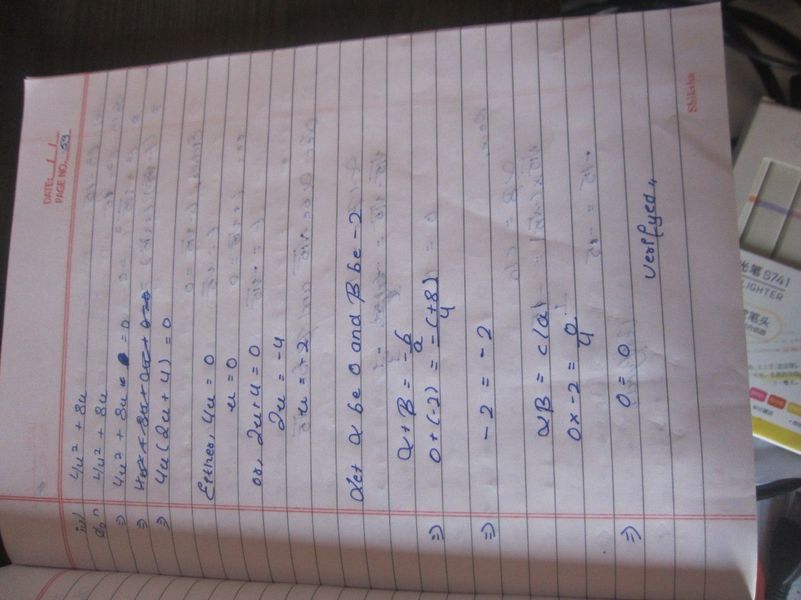 DATE: / /
PAGE NO. 59
iv) 4u² + 8u
So n 4u² + 8u
⇒ 4u² + 8u = 0
⇒
⇒ 4u(2u + 4) = 0
Either, 4u = 0
u = 0
or, 2u + 4 = 0
2u = -4
u = -2
Let α be 0 and β be -2
α + β = -b/a
⇒ 0 + (-2) = -(+8)/4
⇒ -2 = -2
αβ = c/a
0 x -2 = 0/4
⇒ 0 = 0
verifyed,,
Shiksha
光笔 S741
LIGHTER
笔头